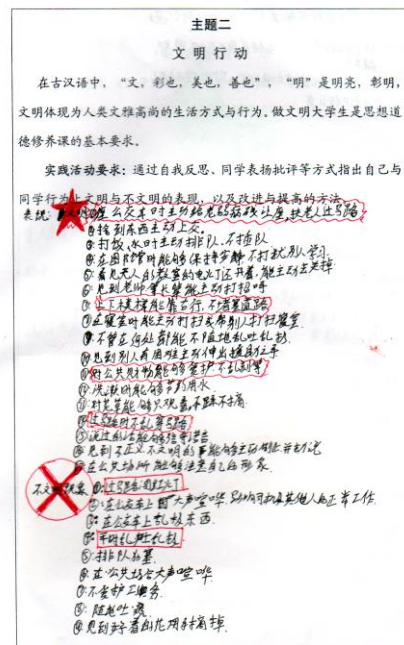 主题二
文 明 行 动
在古汉语中，“文，彩也，美也，善也”，“明”是明亮，彰明，
文明体现为人类文雅高尚的生活方式与行为。做文明大学生是思想道
德修养课的基本要求。
实践活动要求：通过自我反思、同学表扬批评等方式指出自己与
同学行为上文明与不文明的表现，以及改进与提高的方法。
表现：
坐公交车时主动给老弱病残让座，扶老人过马路
②捡到东西主动上交。
③打饭、水时主动排队，不插队
④在图书馆时能够保持安静不打扰别人学习
⑤看见无人的教室的电灯还开着，能主动去关掉
⑥见到老师、家长等能主动打招呼
⑦上下楼梯能靠右行，不堵塞道路
⑧在寝室时能主动打扫或帮别人打扫寝室
⑨不管在何处都能不随地乱吐乱扔
⑩见到别人有困难主动伸出援助之手
对公共财物能够爱护不乱刻等
洗漱时能够节约用水
对花草能够只观看，不踩不摘
过马路时不乱穿马路
说过的话能够信守诺言
见到不正义不文明的事能够主动制止并劝说
在公共场所能够注意自己的形象
不文明现象 ①过马路闯红灯
②在公交车上大声喧哗，影响司机及其他人的正常工作
③在公交车上乱扔东西
④平时乱吐乱扔
⑤排队拥塞
⑥在公共场合大声喧哗
⑦不爱护工具书
⑧随地吐痰
⑨见到好看的花用手摘掉